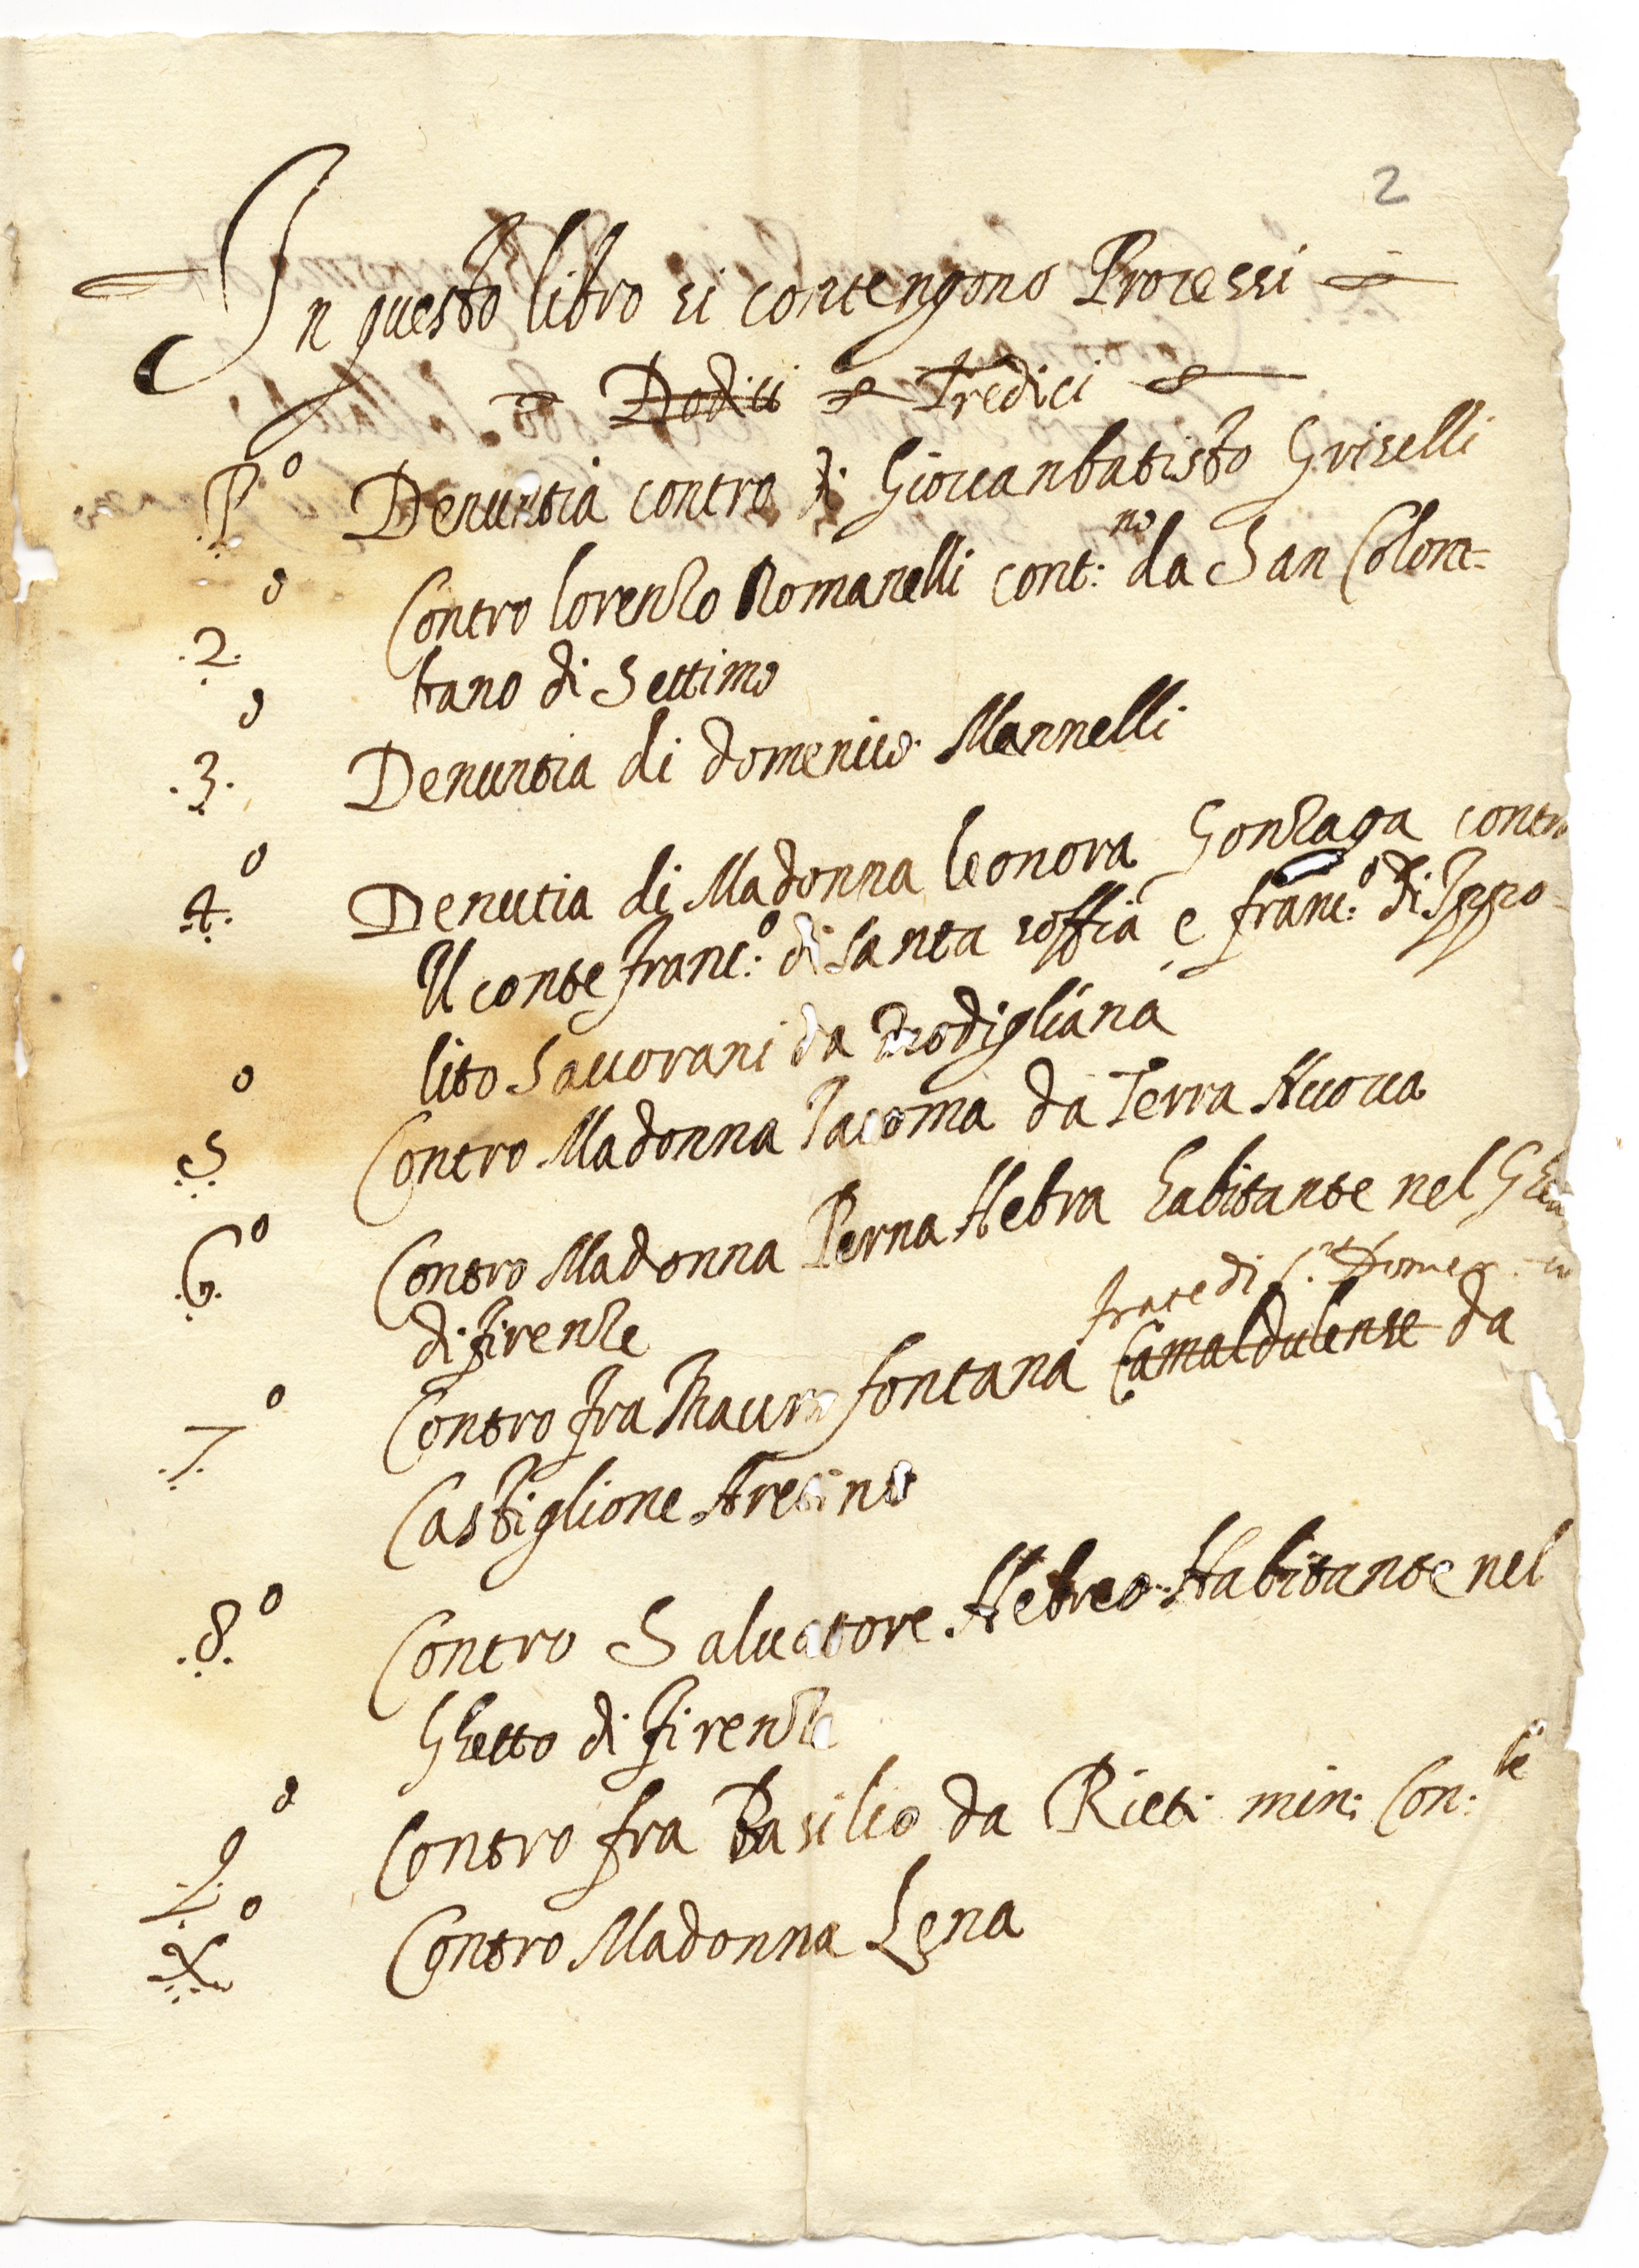 2
In questo libro si contengono Processi
Dodici Tredici
P.º Denuntia contro di Giovanbatisto Griselli
2.º Contro lorenzo Romanelli cont:no da San Colom=
bano di Settimo
3.º Denuntia di domenico Mannelli
4.º Denutia di Madonna leonora Gonzaga contro
Il conte franc:º di santa soffia e franc:º di Ippo-
lito Savorani da Modigliana
5º Contro Madonna Iacoma da Terra Nuova
6.º Contro Madonna Perna Hebra habitante nel
di firenze
frate di S. Domen
7.º Contro fra Mauro fontana Camaldulense da
Castiglione Aretino
8.º Contro Salvatore Hebreo Habitante nel
Ghetto di firenze
9.º Contro fra Basilio da Rieti min: Con:le
X.º Contro Madonna Lena